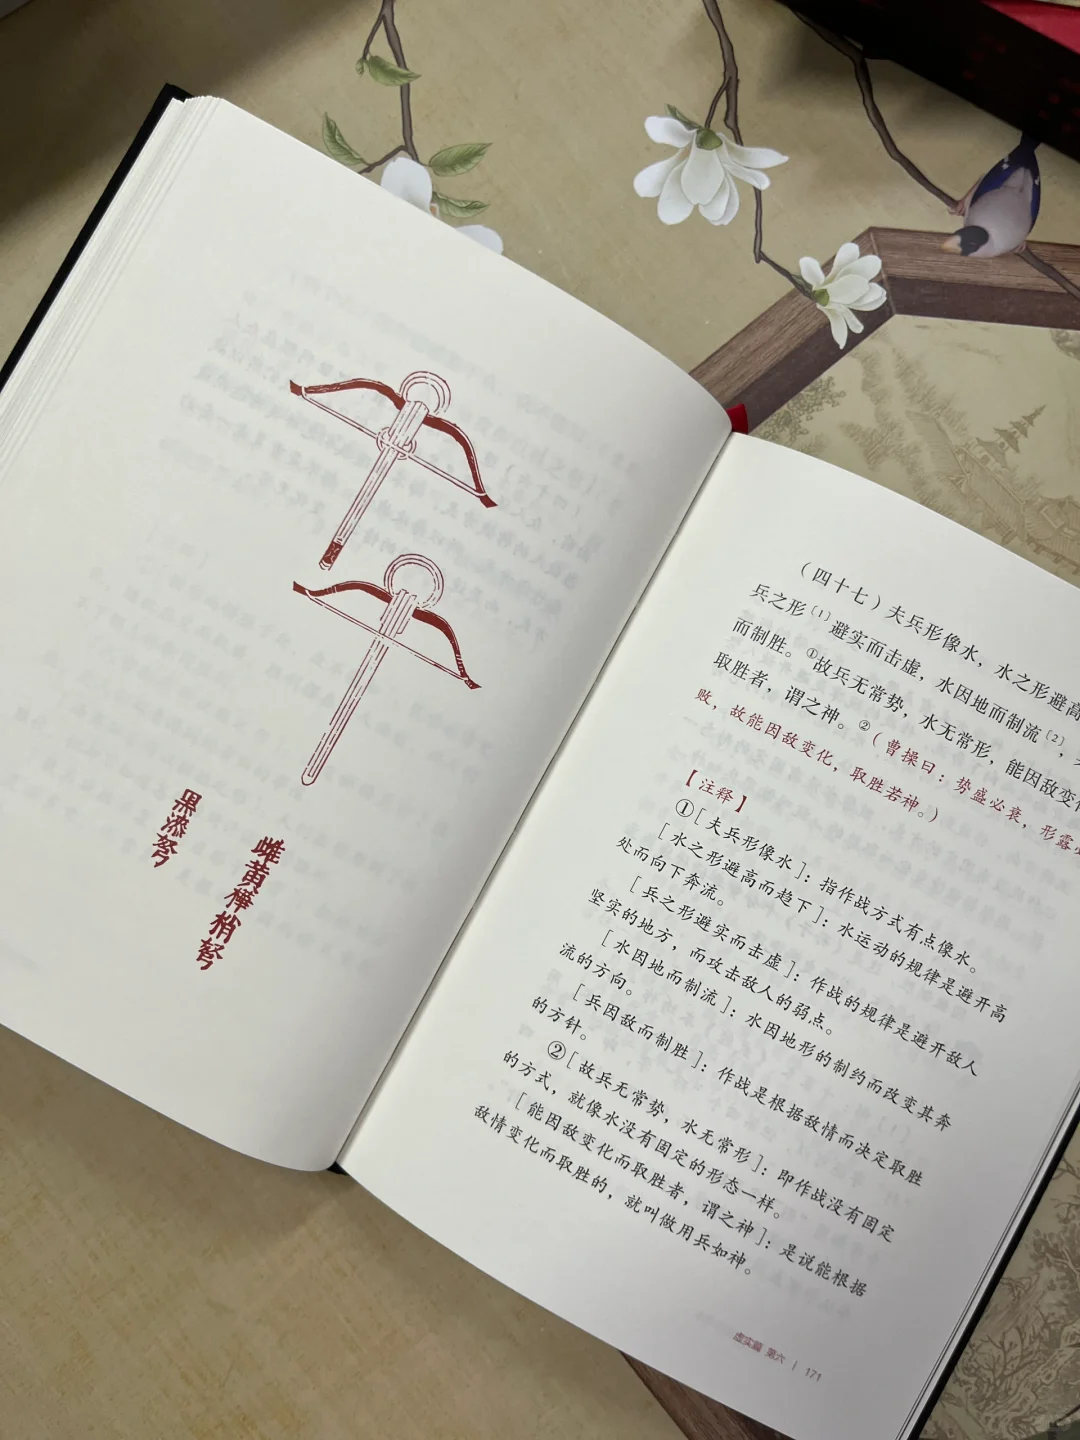 黑漆弩
雌黄桦梢弩
（四十七）夫兵形像水，水之形避高
兵之形〔1〕避实而击虚，水因地而制流〔2〕，
而制胜。①故兵无常势，水无常形，能因敌变化
取胜者，谓之神。②（曹操曰：势盛必衰，形露必
败，故能因敌变化，取胜若神。）
【注释】
①［夫兵形像水］：指作战方式有点像水。
［水之形避高而趋下］：水运动的规律是避开高
处而向下奔流。
［兵之形避实而击虚］：作战的规律是避开敌人
坚实的地方，而攻击敌人的弱点。
［水因地而制流］：水因地形的制约而改变其奔
流的方向。
［兵因敌而制胜］：作战是根据敌情而决定取胜
的方针。
②［故兵无常势，水无常形］：即作战没有固定
的方式，就像水没有固定的形态一样。
［能因敌变化而取胜者，谓之神］：是说能根据
敌情变化而取胜的，就叫做用兵如神。
虚实篇 第六 | 171